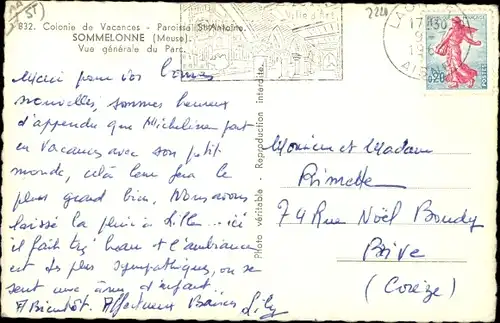 832. Colonie de Vacances - Paroisse St-Antoine.
SOMMELONNE (Meuse).
Vue générale du Parc.
Merci pour vos bonnes
nouvelles, sommes heureux
d'apprendre que Micheline part
en vacances avec son petit
monde, cela leur fera le
plus grand bien. Nous avons
laissé la pluie à Lille... ici
il fait très beau et l'ambiance
est des plus sympathiques, on se
sent une âme d'enfant...
A Bientôt. Affectueux Baisers Lily
Photo véritable - Reproduction interdite.
2220
17 30
9 - 7
196
AISNE
0,20
POSTES
Monsieur et Madame
74 Rue Noël Boudy
Brive
(Corèze)